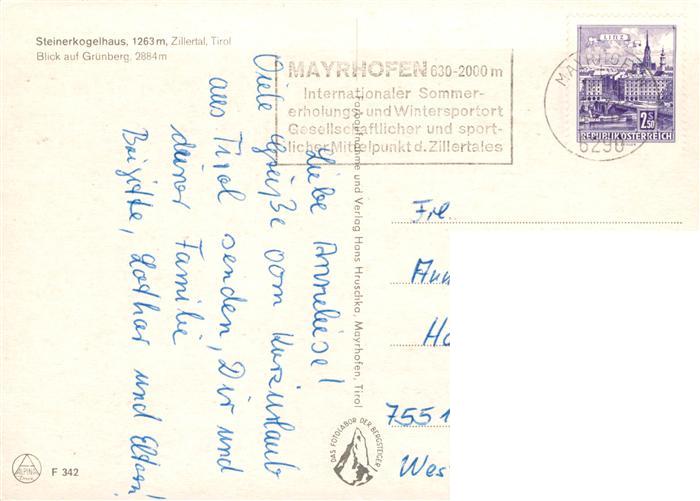 Steinerkogelhaus, 1263 m, Zillertal, Tirol
Blick auf Grünberg, 2884 m
MAYRHOFEN 630-2000 m
Internationaler Sommer-
erholungs- und Wintersportort
Gesellschaftlicher und sport-
licher Mittelpunkt d. Zillertales
MAYRHOFEN
6290
LINZ
2.50
S
REPUBLIK ÖSTERREICH
Liebe Anneliese!
Viele Grüße vom Kurzurlaub
aus Tirol senden, Dir und
deiner Familie
Brigitte, Lothar und Eltern!
Farbaufnahme und Verlag Hans Hruschka, Mayrhofen, Tirol
Frl.
Ann
Ha
7551
Wes
DAS FOTOLABOR DER BERGSTEIGER
ALPINA
F 342